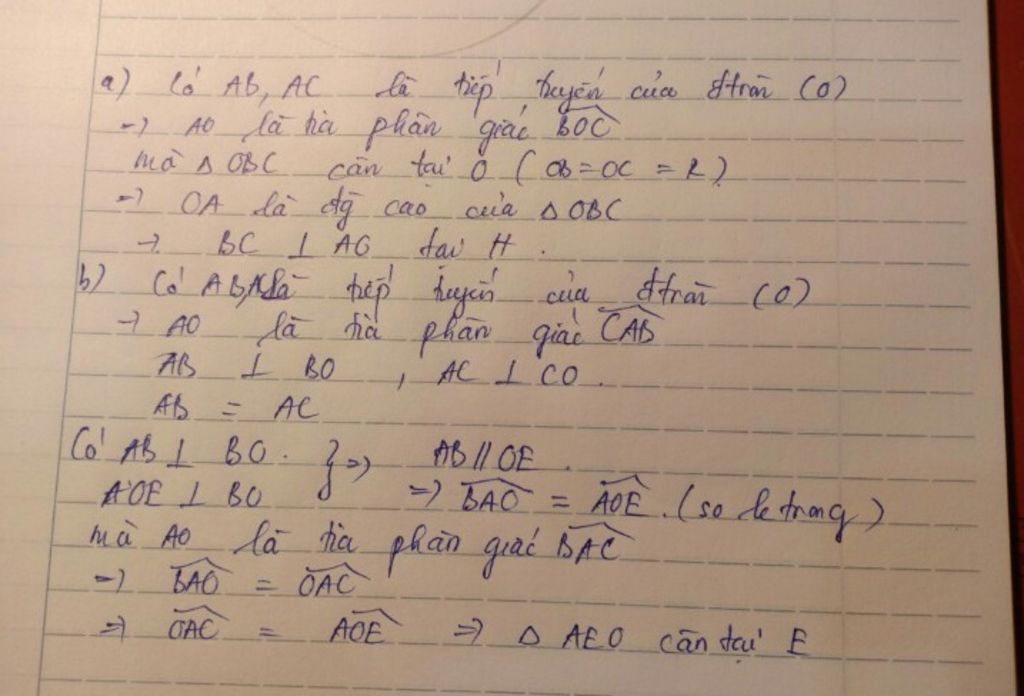 a) Có AB, AC là tiếp tuyến của đtròn (O)
=> AO là tia phân giác BOC
mà △ OBC cân tại O ( OB = OC = R )
=> OA là đg cao của △ OBC
=> BC ⊥ AO tại H .
b) Có AB, AC là tiếp tuyến của đtròn (O)
=> AO là tia phân giác CAB
AB ⊥ BO , AC ⊥ CO .
AB = AC
Có AB ⊥ BO . } => AB // OE .
OE ⊥ BO => BAO = AOE . (so le trong)
mà AO là tia phân giác BAC
=> BAO = OAC
=> OAC = AOE => △ AEO cân tại E